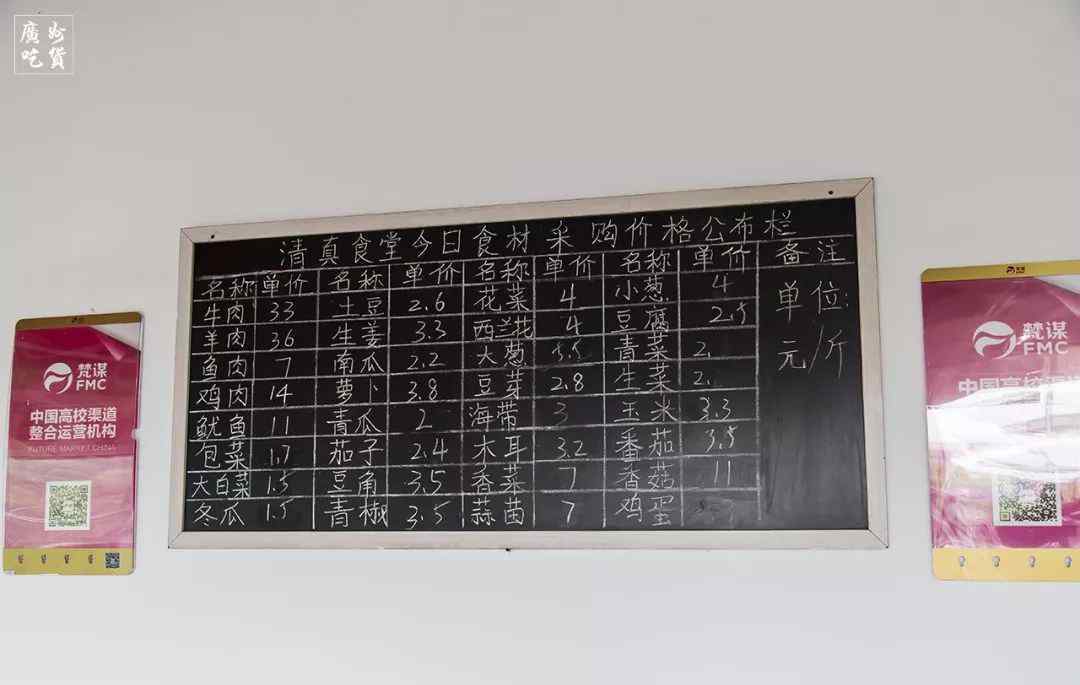 廣州吃货
清真食堂今日食材采购价格公布栏
名称 单价 名称 单价 名称 单价 名称 单价 备注
牛肉 33 土豆 2.6 花菜 4 小葱 4 单位:
羊肉 36 生姜 3.3 西兰花 4 豆腐 2.5 元/斤
鱼肉 7 南瓜 2.2 大葱 3.5 青菜 2.
鸡肉 14 萝卜 3.8 豆芽 2.8 生菜 2.
鱿鱼 11 青瓜 2 海带 3 玉米 3.3
包菜 1.7 茄子 2.4 木耳 3.2 番茄 3.5
大白菜 1.5 豆角 3.5 香菜 7 香菇 11
冬瓜 1.5 青椒 3.5 蒜苗 7 鸡蛋
梵谋
FMC
中国高校渠道
整合运营机构
FUTURE MARKET CHINA
梵谋
FMC
中国高校渠道